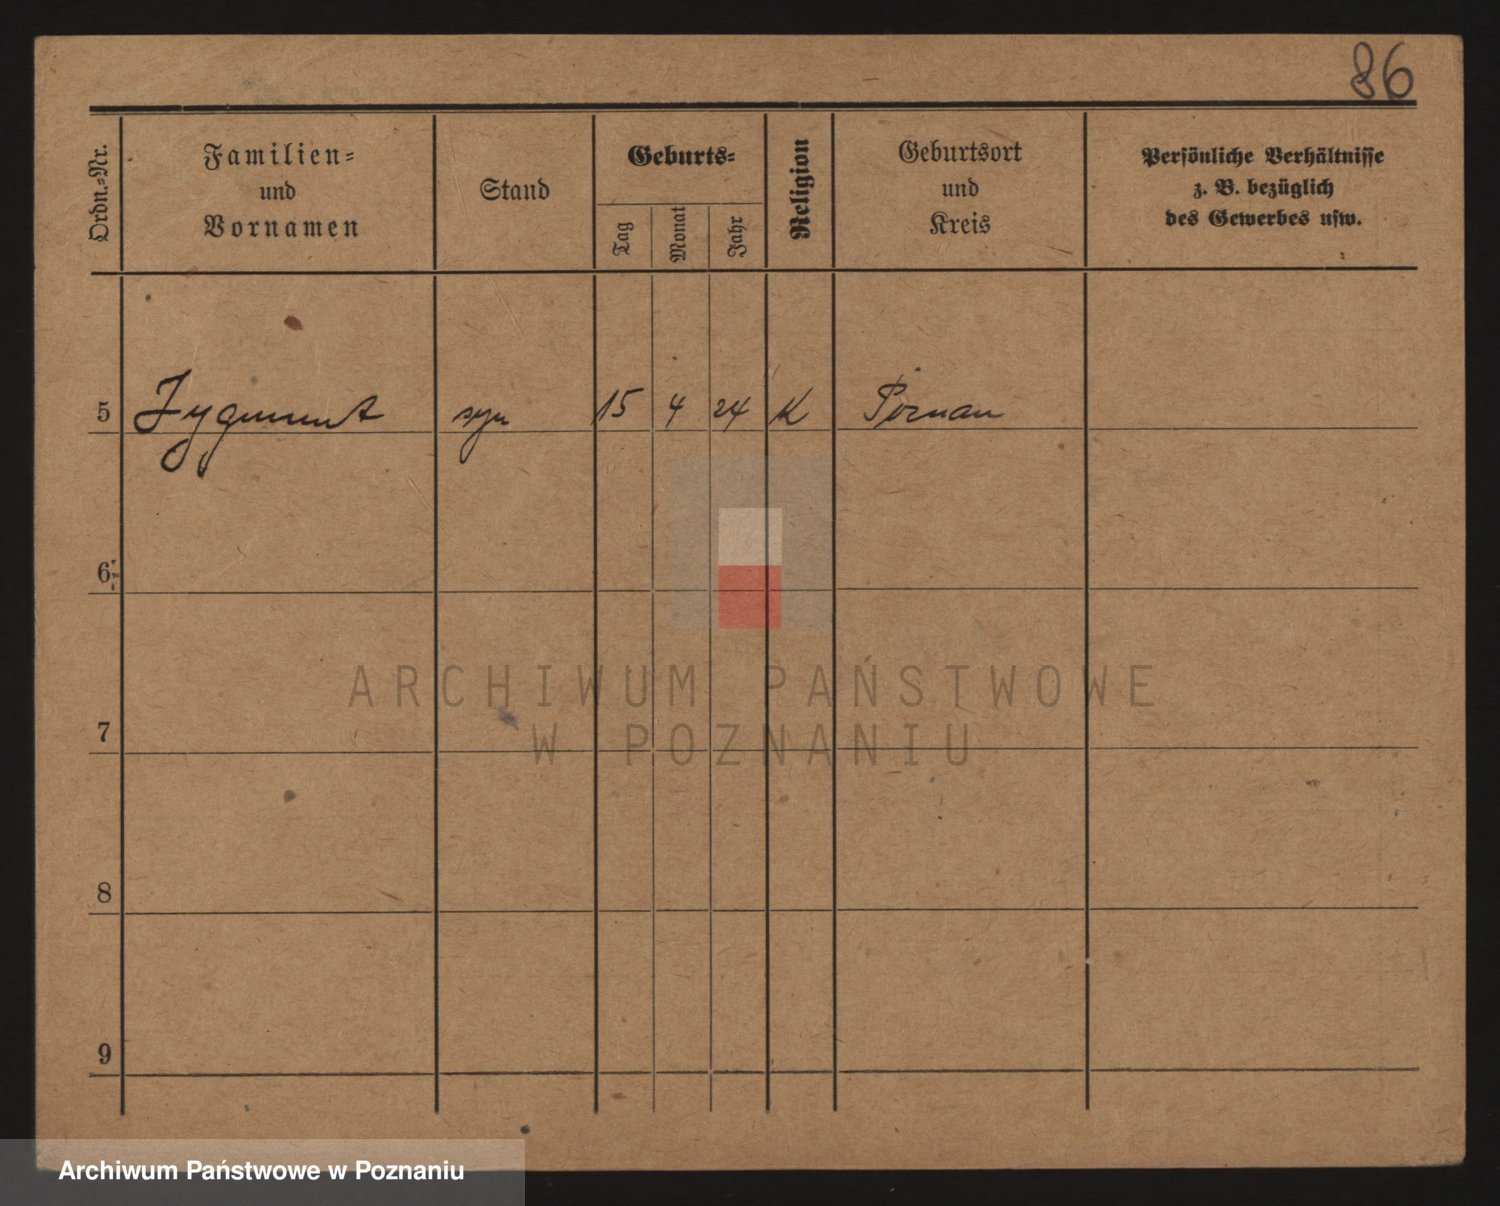 86
Ordn.-Nr.
Familien-
und
Vornamen
Stand
Geburts-
Tag
Monat
Jahr
Religion
Geburtsort
und
Kreis
Persönliche Verhältnisse
z. B. bezüglich
des Gewerbes usw.
5 Zygmunt syn 15 4 24 K Poznań
6
7
8
9
ARCHIWUM PAŃSTWOWE
W POZNANIU
Archiwum Państwowe w Poznaniu